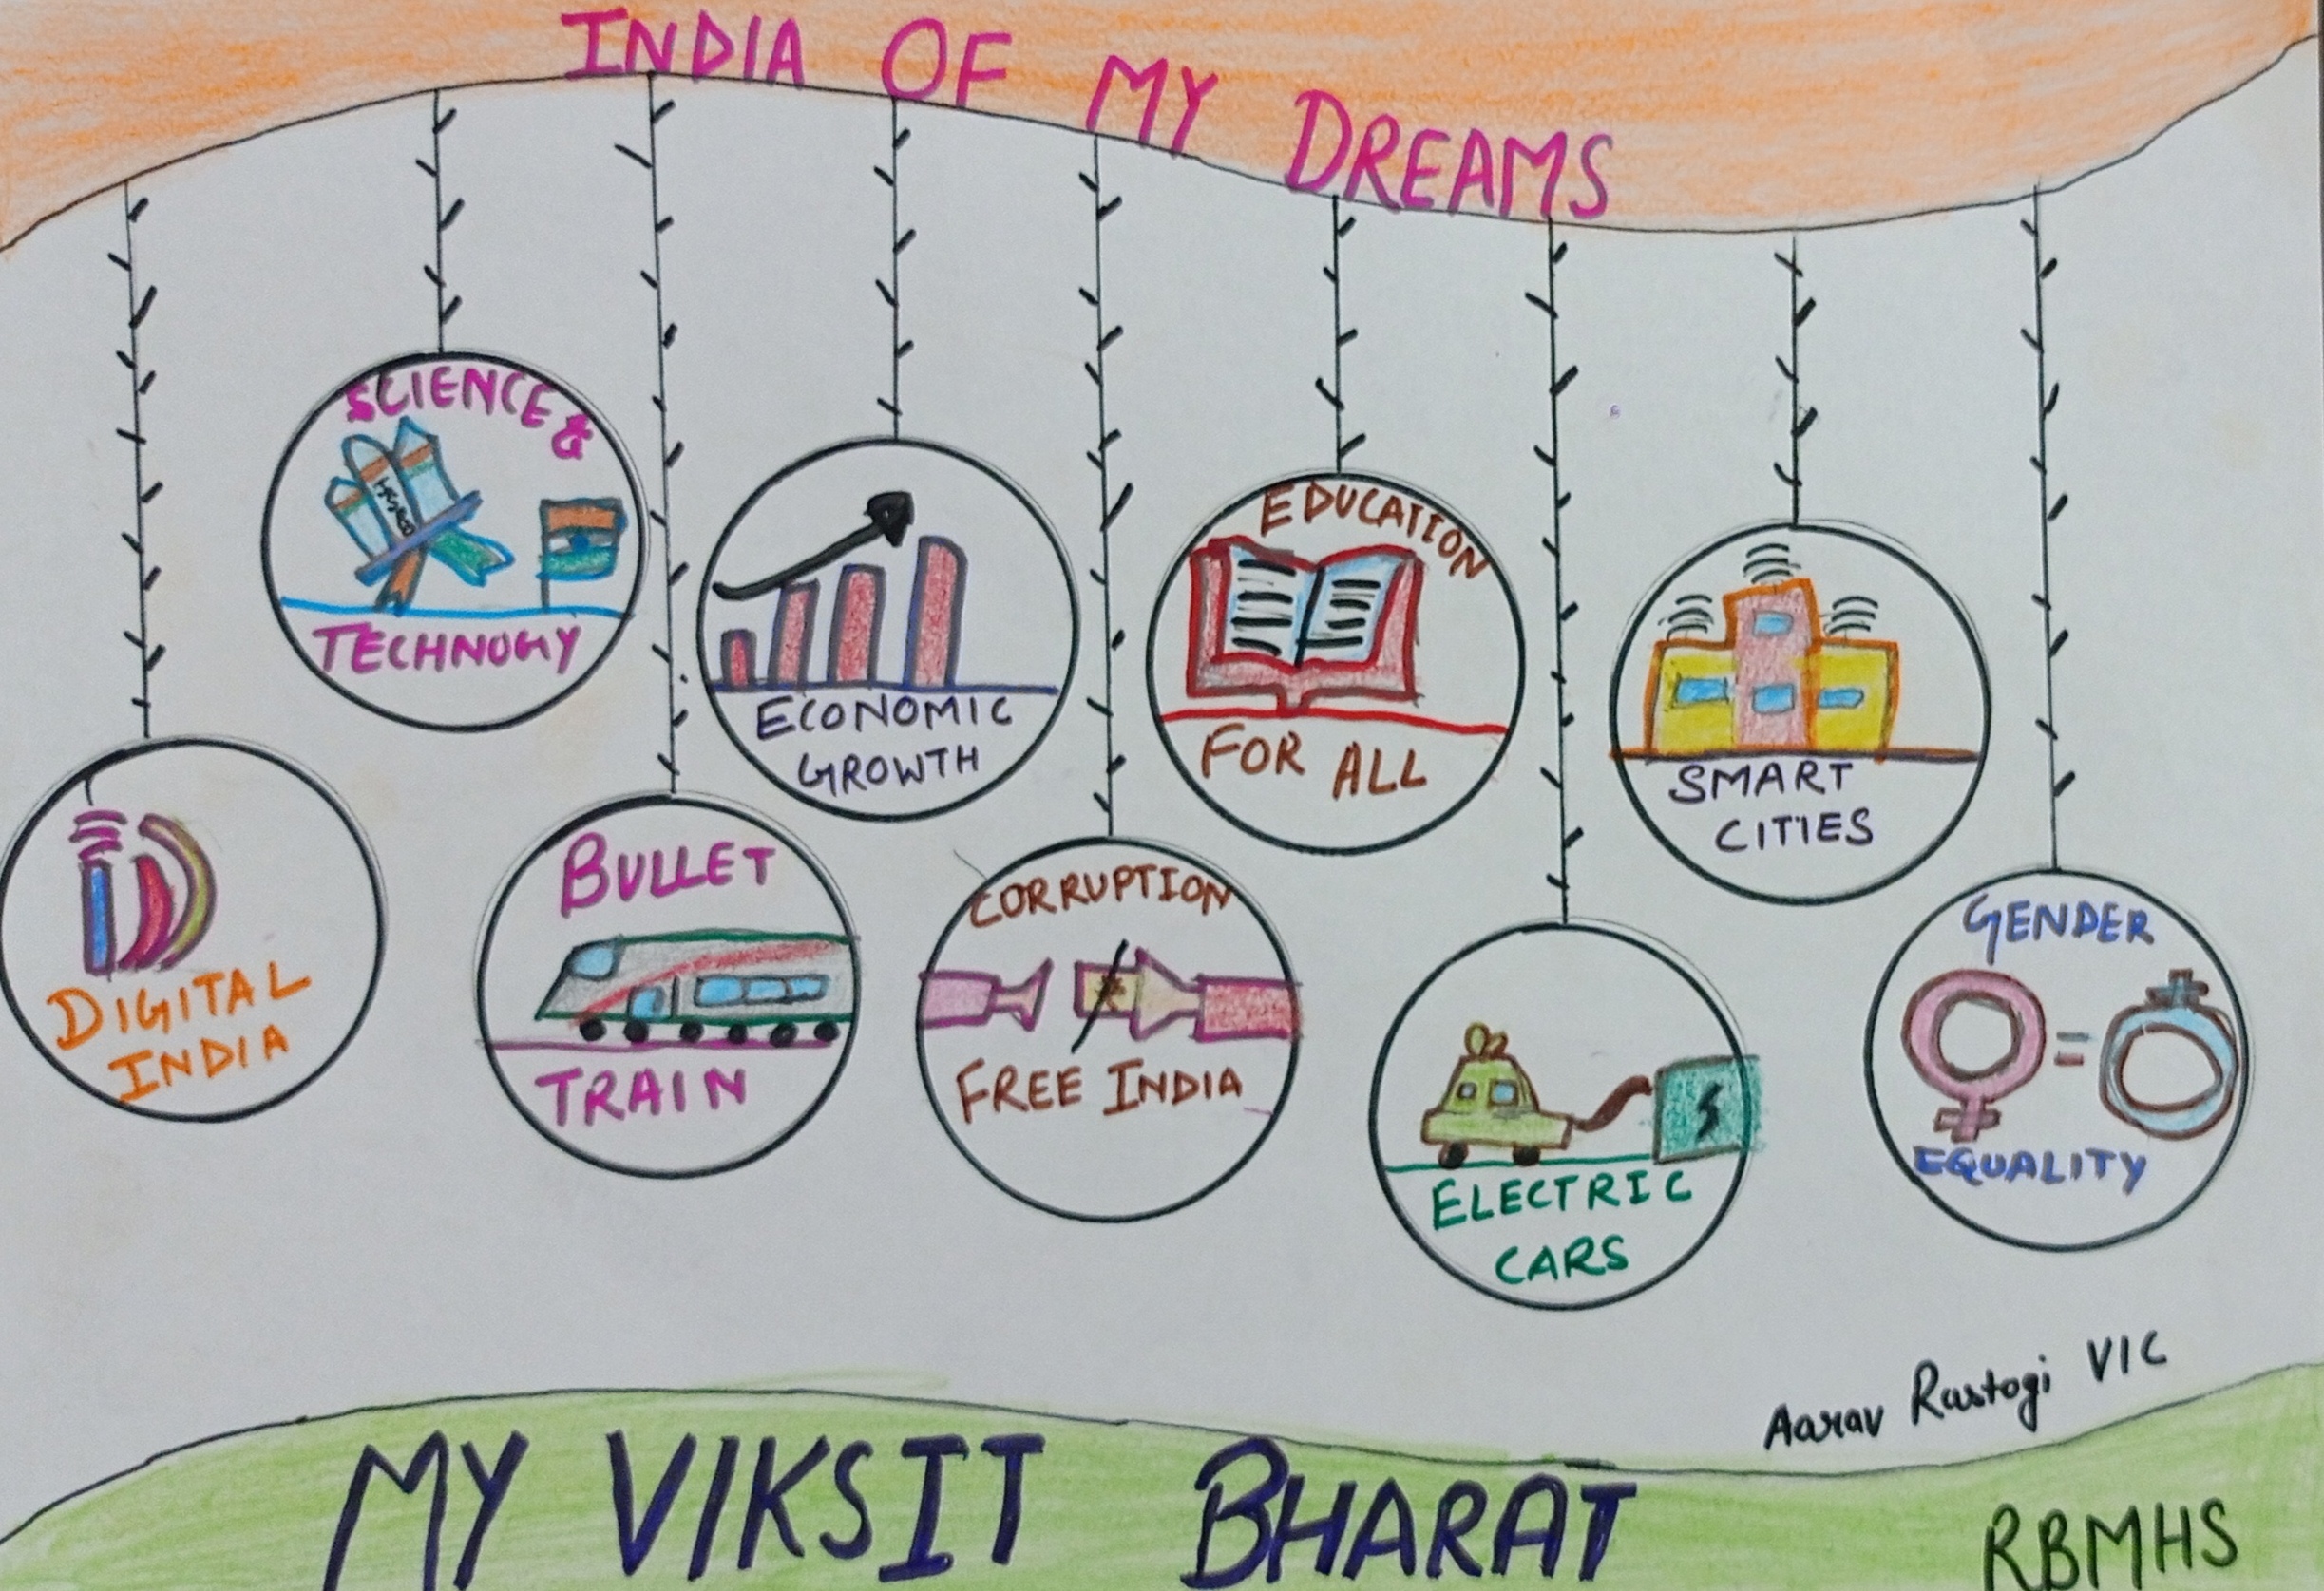 INDIA OF MY DREAMS
SCIENCE &
TECHNOGY
ECONOMIC
GROWTH
EDUCATION
FOR ALL
SMART
CITIES
DIGITAL
INDIA
BULLET
TRAIN
CORRUPTION
FREE INDIA
ELECTRIC
CARS
GENDER
=
EQUALITY
Aarav Rastogi VIC
MY VIKSIT BHARAT
RBMHS